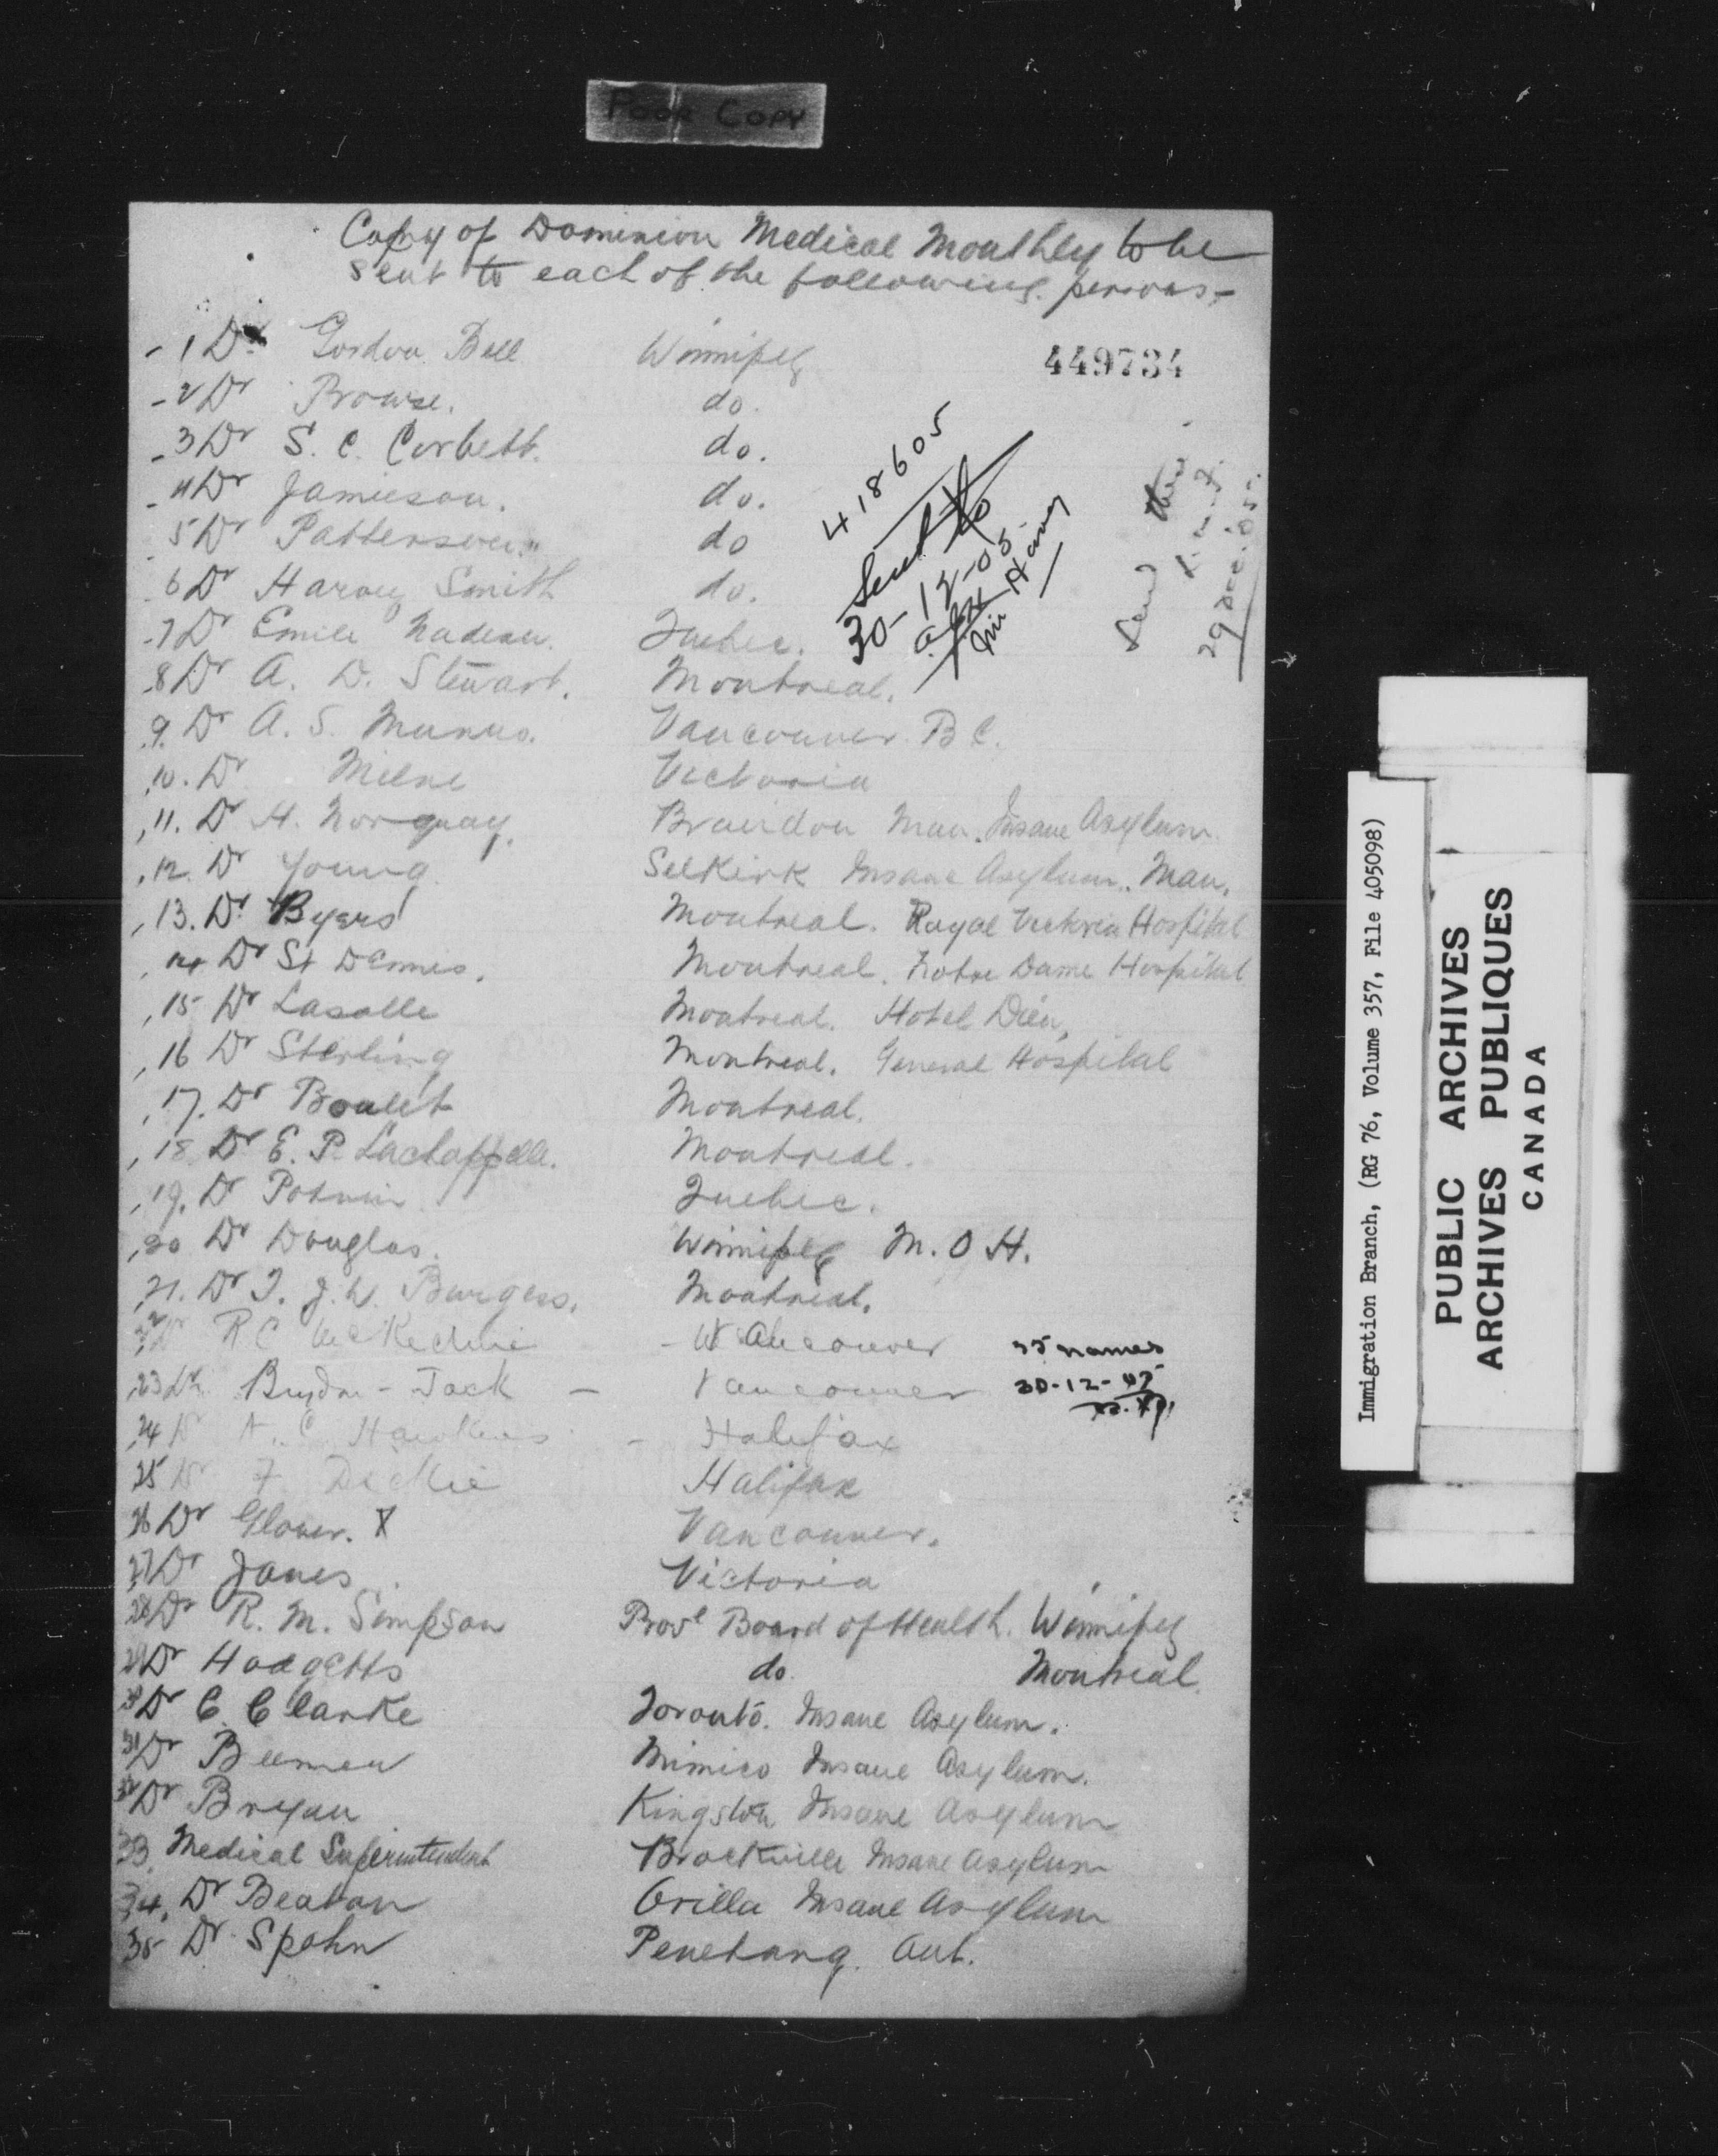 Poor Copy
Copy of Dominion Medical Monthly to be
sent to each of the following persons.-
449734
1 Dr Gordon Bell Winnipeg
2 Dr Prowse. do.
3 Dr S. C. Corbett. do.
4 Dr Jamieson. do.
5 Dr Patterson do
6 Dr Harvey Smith do.
7 Dr Emile Nadeau. Quebec.
8 Dr A. D. Stewart. Montreal.
9. Dr A. S. Munro. Vancouver B C.
10. Dr Milne Victoria
11. Dr H. Norquay. Brandon Man. Insane Asylum.
12. Dr Young Selkirk Insane Asylum. Man.
13. Dr Byers Montreal. Royal Victoria Hospital
14 Dr St Dennis. Montreal. Notre Dame Hospital
15 Dr Lasalle Montreal. Hotel Dieu,
16 Dr Sterling Montreal. General Hospital
17. Dr Boulet Montreal.
18 Dr E. P. Lachappelle. Montreal.
19. Dr Potvin Quebec.
20 Dr Douglas. Winnipeg M. O H.
21. Dr T. J. W. Burgess. Montreal.
22 Dr R C McKechnie - Vancouver
23 Dr Brydon - Jack - Vancouver
24 Dr A. C Hawkins - Halifax
25 Dr F. Dickie Halifax
26 Dr Glover. X Vancouver.
27 Dr Jones Victoria
28 Dr R. M. Simpson Provl Board of Health. Winnipeg
29 Dr Hodgetts do. Montreal.
30 Dr C. Clarke Toronto. Insane Asylum.
31 Dr Beemer Mimico Insane Asylum.
32 Dr Bryan Kingston Insane Asylum
33. Medical Superintendent Brockville Insane Asylum
34. Dr Beaton Orilla Insane Asylum
35 Dr Spohn Penetang. Ont.
418605
Sent to
30-12-05
Send this
29 Dec. 05.
35 names
30-12-05
Immigration Branch, (RG 76, Volume 357, File 405098)
PUBLIC ARCHIVES
ARCHIVES PUBLIQUES
CANADA